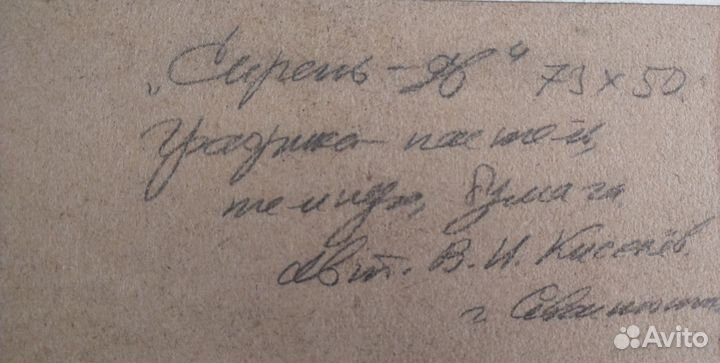 „Сирень-  " 73 x 50.
Графика пастель,
темпера, бумага
Авт. В. И. Киселёв.
г.
Avito